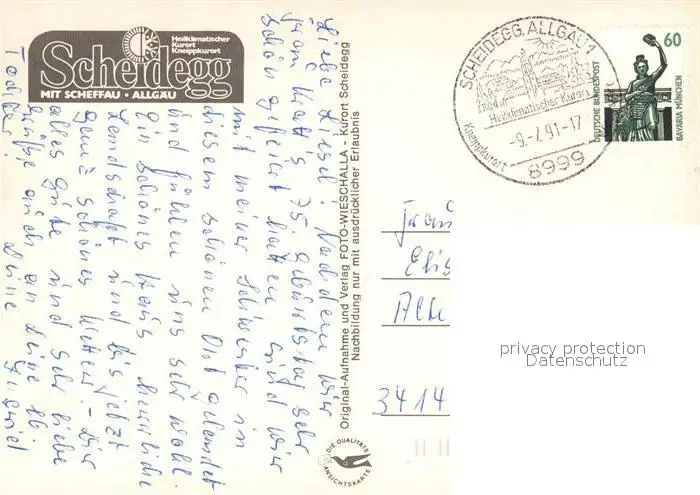 Heilklimatischer
Kurort
Kneippkurort
Scheidegg
MIT SCHEFFAU • ALLGÄU
Liebe Liesel! Nachdem wir
Frau 75 Geburtstag sehr
schön gefeiert hatten sind wir
mit meiner Schwester in
diesem schönen Ort gelandet
und fühlen uns sehr wohl.
Ein schönes Haus herrliche
Landschaft und bis jetzt
ganz schönes Wetter! - Dir
alles Gute und sehr liebe
Grüße auch an Deine lb.
Tochter! Deine
Original-Aufnahme und Verlag FOTO-WIESCHALLA - Kurort Scheidegg
Nachbildung nur mit ausdrücklicher Erlaubnis
DIE QUALITÄTS
ANSICHTSKARTE
SCHEIDEGG, ALLGÄU 1
Heilklimatischer Kurort
Kneippkurort
-9.-7.91-17
8999
60
DEUTSCHE BUNDESPOST
BAVARIA MÜNCHEN
Frau
Elis
Alte
3414
privacy protection
Datenschutz